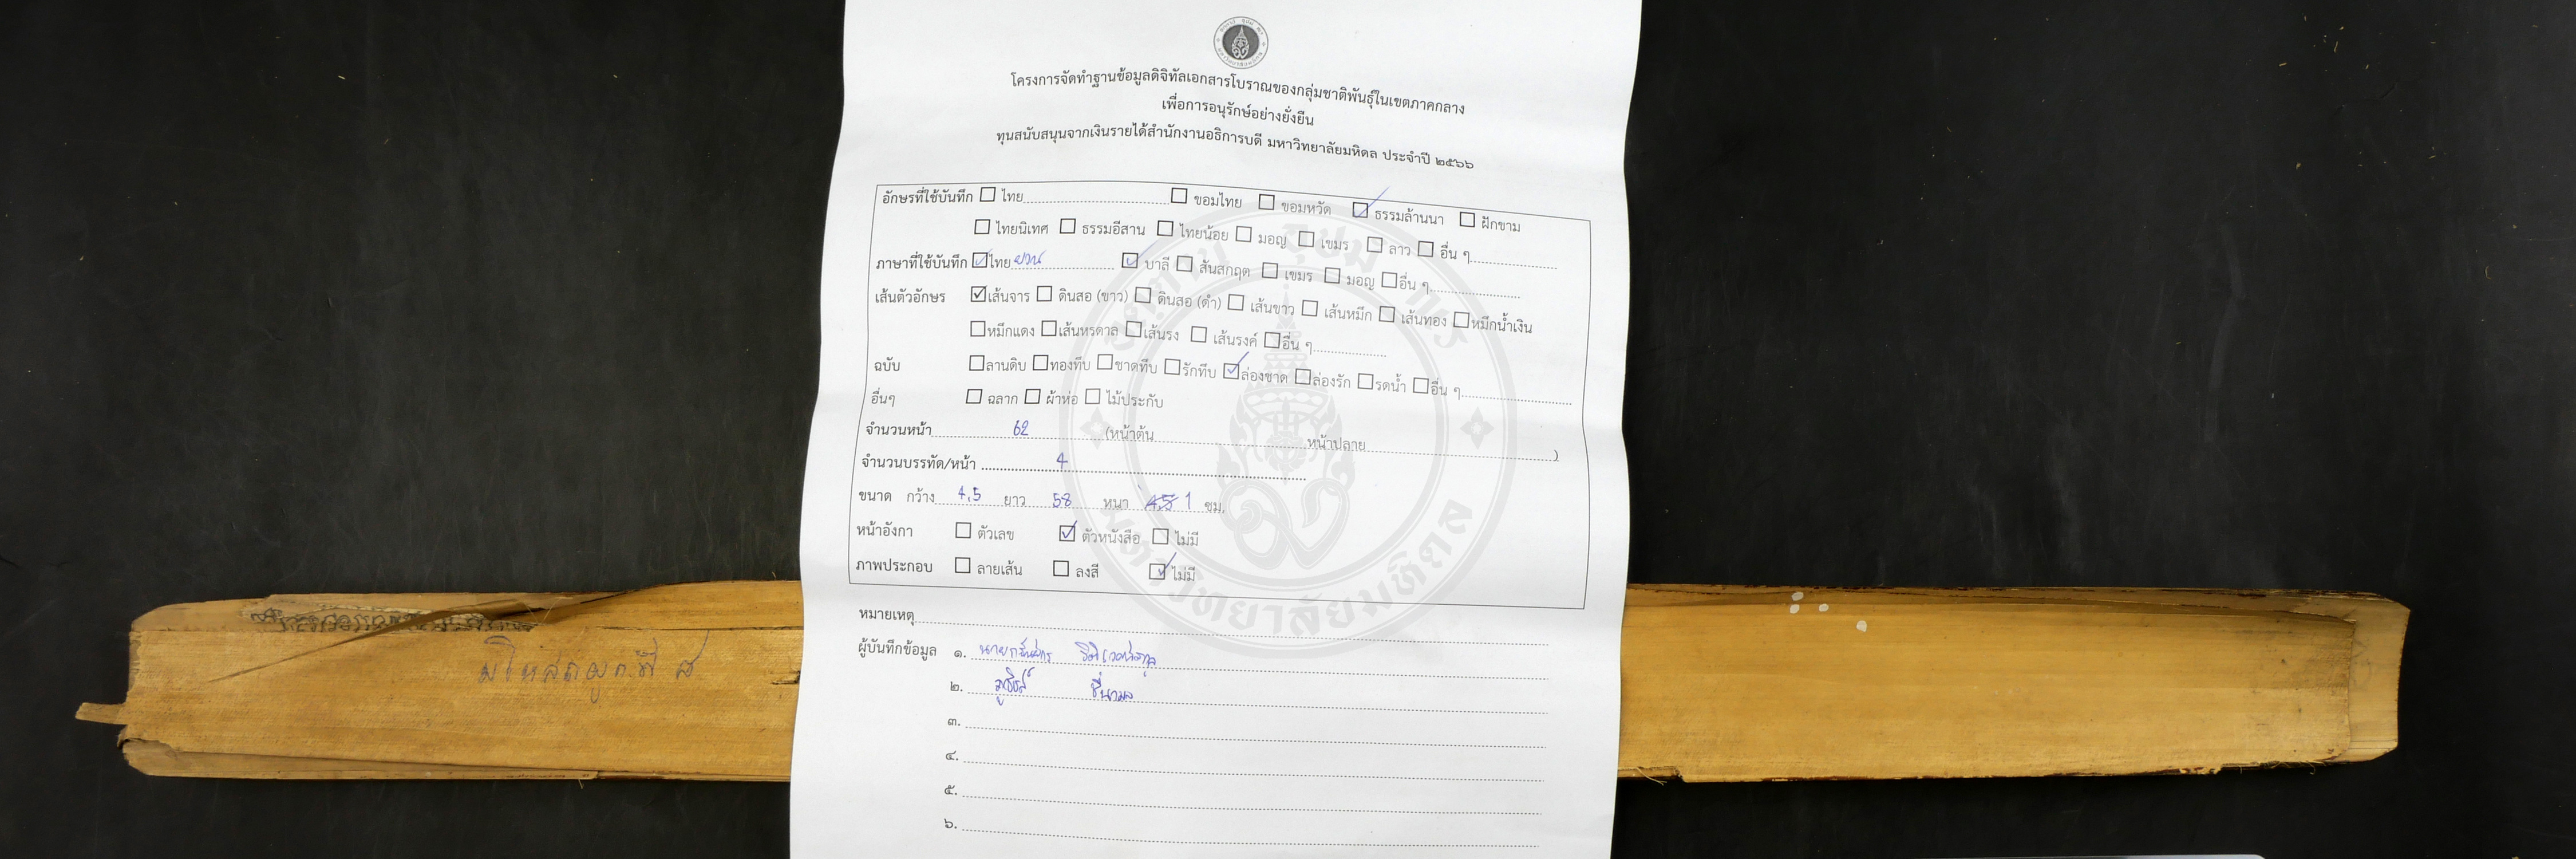 โครงการจัดทำฐานข้อมูลดิจิทัลเอกสารโบราณของกลุ่มชาติพันธุ์ในเขตภาคกลาง
เพื่อการอนุรักษ์อย่างยั่งยืน
ทุนสนับสนุนจากเงินรายได้สำนักงานอธิการบดี มหาวิทยาลัยมหิดล ประจำปี ๒๕๖๖
อักษรที่ใช้บันทึก ☐ ไทย ☐ ขอมไทย ☐ ขอมหวัด ☑ ธรรมล้านนา ☐ ฝักขาม
☐ ไทยนิเทศ ☐ ธรรมอีสาน ☐ ไทยน้อย ☐ มอญ ☐ เขมร ☐ ลาว ☐ อื่น ๆ
ภาษาที่ใช้บันทึก ☑ ไทย ยวน ☑ บาลี ☐ สันสกฤต ☐ เขมร ☐ มอญ ☐ อื่น ๆ
เส้นตัวอักษร ☑ เส้นจาร ☐ ดินสอ (ขาว) ☐ ดินสอ (ดำ) ☐ เส้นขาว ☐ เส้นหมึก ☐ เส้นทอง ☐ หมึกน้ำเงิน
☐ หมึกแดง ☐ เส้นหรดาล ☐ เส้นรง ☐ เส้นรงค์ ☐ อื่น ๆ
ฉบับ ☐ ลานดิบ ☐ ทองทึบ ☐ ชาดทึบ ☐ รักทึบ ☑ ล่องชาด ☐ ล่องรัก ☐ รดน้ำ ☐ อื่น ๆ
อื่นๆ ☐ ฉลาก ☐ ผ้าห่อ ☐ ไม้ประกับ
จำนวนหน้า 62 (หน้าต้น หน้าปลาย )
จำนวนบรรทัด/หน้า 4
ขนาด กว้าง 4.5 ยาว 58 หนา 1 ซม.
หน้าอังกา ☐ ตัวเลข ☑ ตัวหนังสือ ☐ ไม่มี
ภาพประกอบ ☐ ลายเส้น ☐ ลงสี ☑ ไม่มี
หมายเหตุ
ผู้บันทึกข้อมูล ๑. นาย
๒.
๓.
๔.
๕.
๖.
มโหสดผูกที่
มหาวิทยาลัยมหิดล